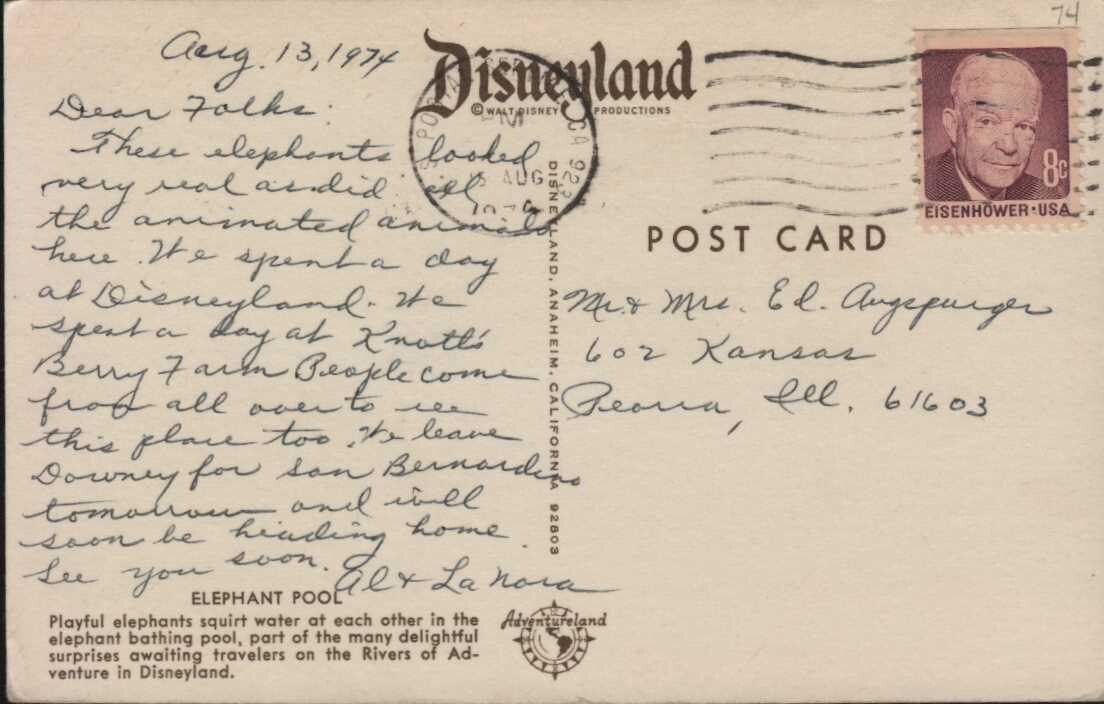 74
Aug. 13, 1974
Disneyland
© WALT DISNEY PRODUCTIONS
Dear Folks:
These elephants looked
very real as did all
the animated animals
here. We spent a day
at Disneyland. We
spent a day at Knott's
Berry Farm People come
from all over to see
this place too. We leave
Downey for San Bernardino
tomorrow and will
soon be heading home.
See you soon.
Al & La Nora
ELEPHANT POOL
Playful elephants squirt water at each other in the
elephant bathing pool, part of the many delightful
surprises awaiting travelers on the Rivers of Ad-
venture in Disneyland.
DISNEYLAND, ANAHEIM, CALIFORNIA 92803
Adventureland
PM
AUG
CA
8c
EISENHOWER·USA
POST CARD
Mr. & Mrs. Ed. Augspurger
602 Kansas
Peoria, Ill. 61603